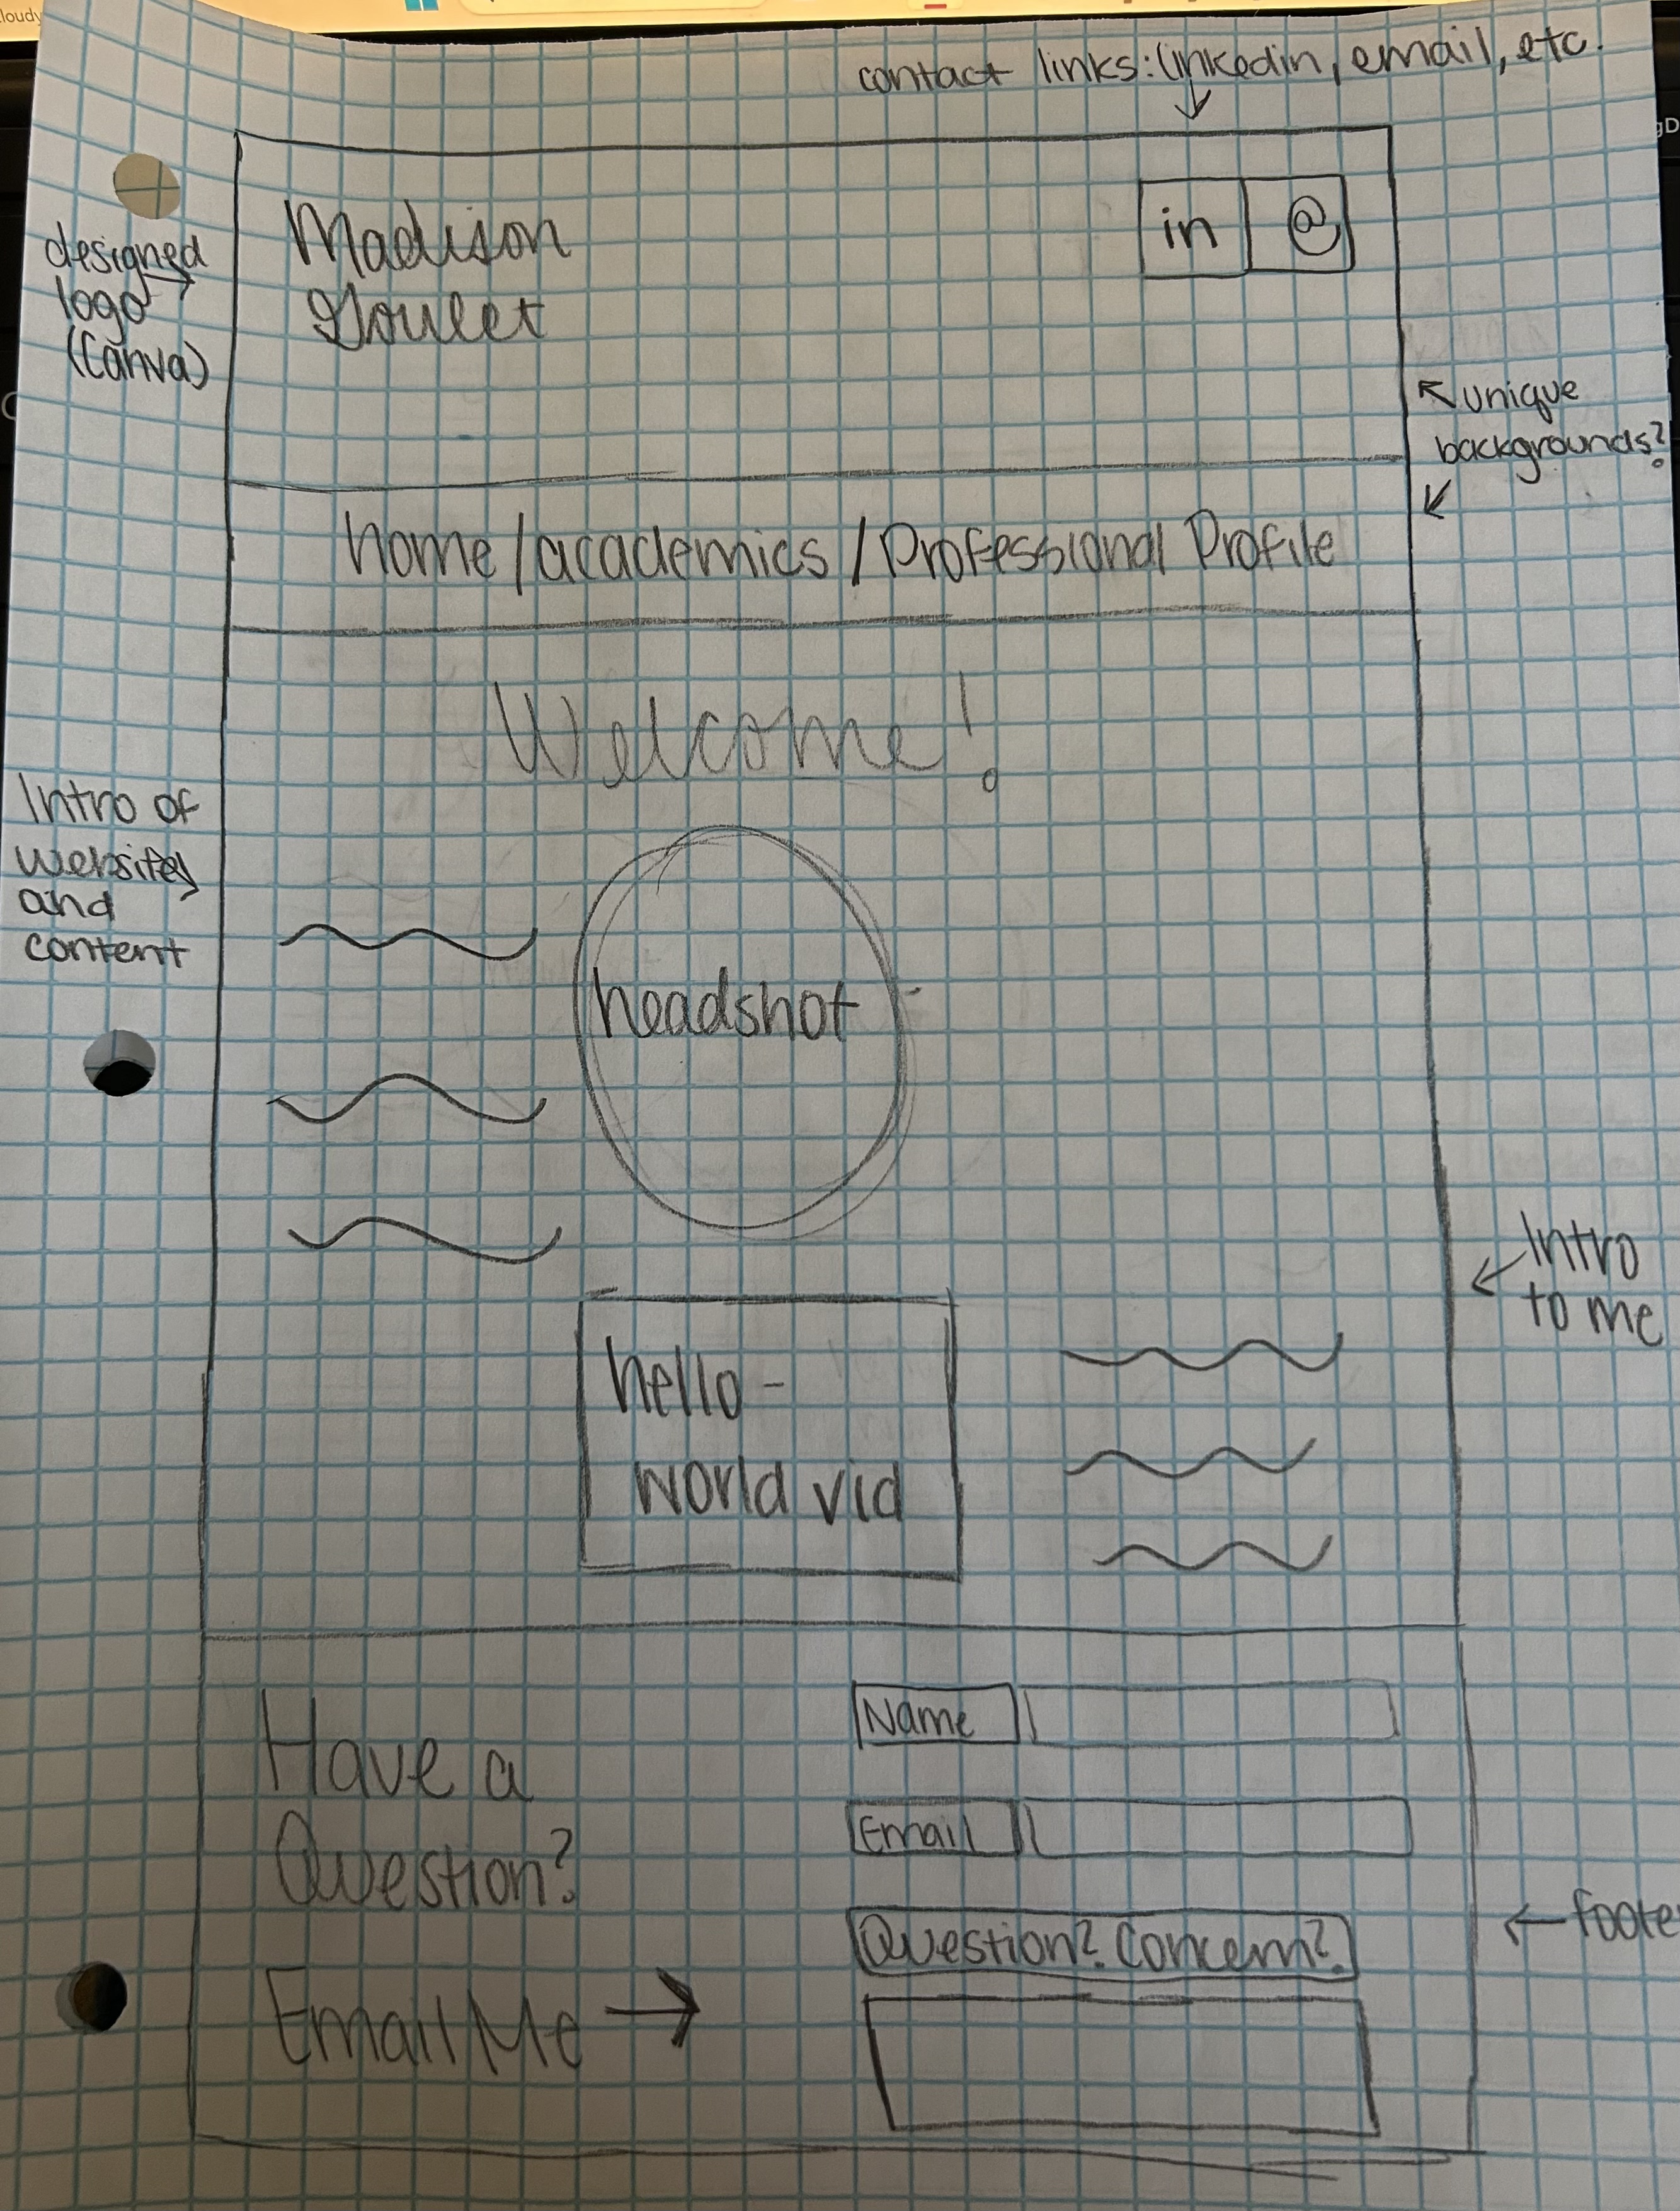 cloudy
contact links: linkedin, email, etc.
in @
Madison
Goulet
designed
logo
(Canva)
unique
backgrounds?
home / academics / Professional Profile
Welcome!
Intro of
website
and
content
headshot
Intro
to me
hello -
world vid
Have a
Question?
Email Me
Name
Email
Question? Concern?
foote